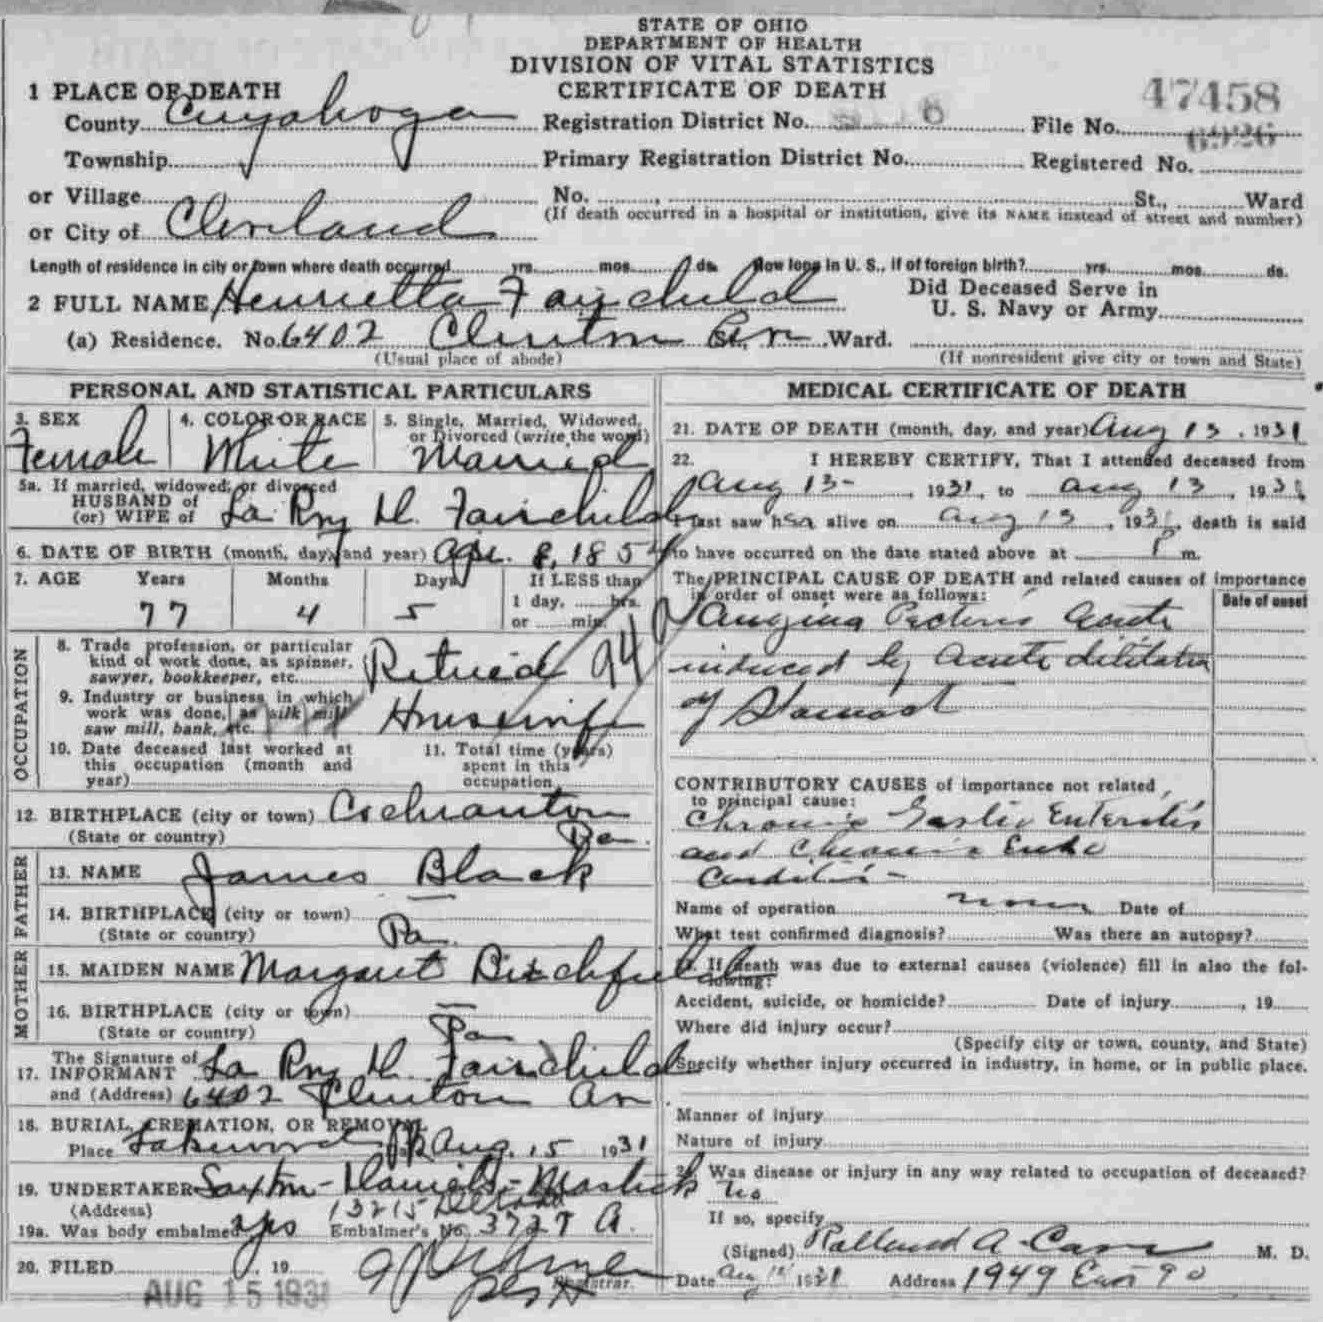 STATE OF OHIO
DEPARTMENT OF HEALTH
DIVISION OF VITAL STATISTICS
CERTIFICATE OF DEATH
1 PLACE OF DEATH
County Cuyahoga Registration District No. File No. 47458
Township Primary Registration District No. Registered No. 6926
or Village No. , St., Ward
(If death occurred in a hospital or institution, give its NAME instead of street and number)
or City of Cleveland
Length of residence in city or town where death occurred yrs. mos. ds. How long in U. S., if of foreign birth? yrs. mos. ds.
2 FULL NAME Henrietta Fairchild Did Deceased Serve in U. S. Navy or Army
(a) Residence. No. 6402 Clinton Av Ward.
(Usual place of abode) (If nonresident give city or town and State)
PERSONAL AND STATISTICAL PARTICULARS
3. SEX Female
4. COLOR OR RACE White
5. Single, Married, Widowed, or Divorced (write the word) Married
5a. If married, widowed, or divorced
HUSBAND of
(or) WIFE of La Roy H. Fairchild
6. DATE OF BIRTH (month, day, and year) Apr. 8, 1854
7. AGE Years Months Days If LESS than
77 4 5 1 day, hrs.
or min.
OCCUPATION
8. Trade profession, or particular
kind of work done, as spinner,
sawyer, bookkeeper, etc. Retired 94
9. Industry or business in which
work was done, as silk mill
saw mill, bank, etc. Housewife
10. Date deceased last worked at
this occupation (month and
year)
11. Total time (years)
spent in this
occupation
12. BIRTHPLACE (city or town) Cochranton
(State or country) Pa.
FATHER
13. NAME James Black
14. BIRTHPLACE (city or town)
(State or country) Pa.
MOTHER
15. MAIDEN NAME Margaret Birchfield
16. BIRTHPLACE (city or town)
(State or country) Pa
The Signature of
17. INFORMANT La Roy H Fairchild
and (Address) 6402 Clinton Av.
18. BURIAL, CREMATION, OR REMOVAL
Place Lakewood Pk Aug. 15 1931
19. UNDERTAKER Saxton-Daniels-Mastick
(Address) 13215 Detroit
19a. Was body embalmed yes Embalmer's No. 3727 A.
20. FILED , 19
AUG 15 1931 Registrar.
MEDICAL CERTIFICATE OF DEATH
21. DATE OF DEATH (month, day, and year) Aug 13, 1931
22. I HEREBY CERTIFY, That I attended deceased from
Aug 13- , 1931, to Aug 13, 1931
I last saw her alive on Aug 13, 1931, death is said
to have occurred on the date stated above at P m.
The PRINCIPAL CAUSE OF DEATH and related causes of importance
in order of onset were as follows: Date of onset
Angina Pectoris acute
induced by acute dilitation
of Stomach
CONTRIBUTORY CAUSES of importance not related
to principal cause:
Chronic Gastro Enteritis
and Chronic Endo
Carditis-
Name of operation none Date of
What test confirmed diagnosis? Was there an autopsy?
If death was due to external causes (violence) fill in also the following:
Accident, suicide, or homicide? Date of injury , 19
Where did injury occur?
(Specify city or town, county, and State)
Specify whether injury occurred in industry, in home, or in public place.
Manner of injury
Nature of injury
24. Was disease or injury in any way related to occupation of deceased?
No
If so, specify
(Signed) A. M. D.
Date Aug 1931 Address 1949 East 90